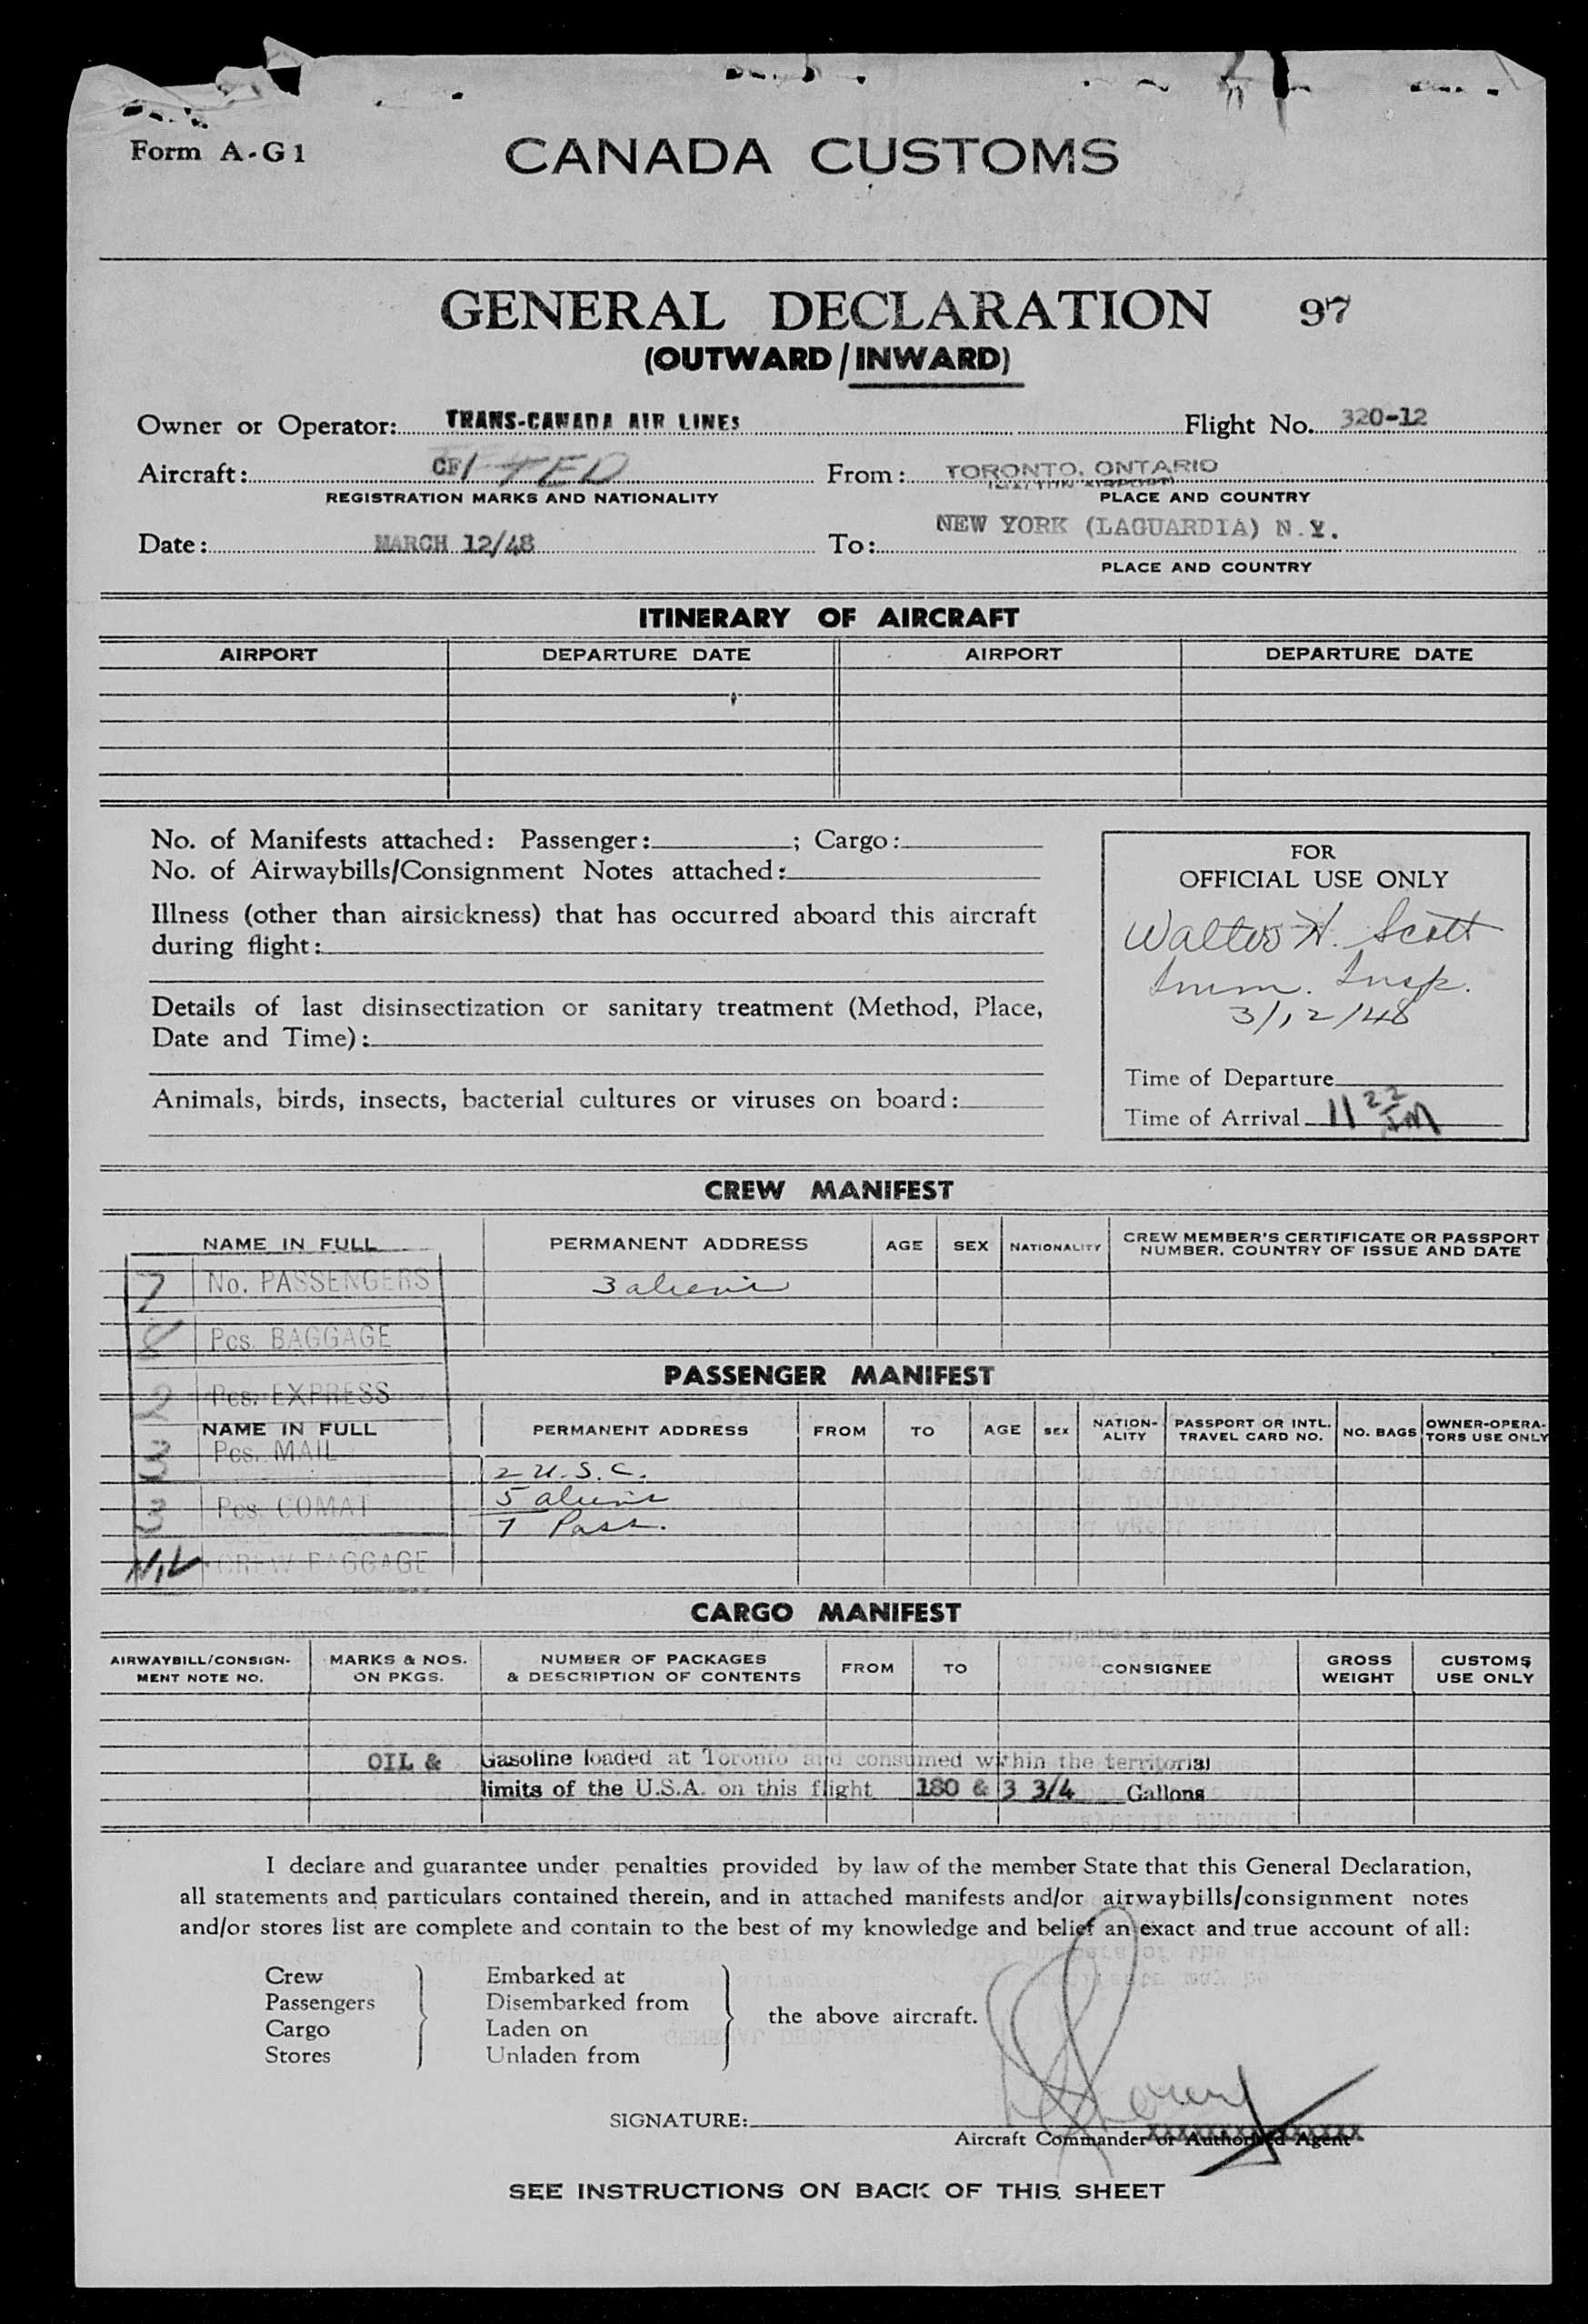 Form A-G1
CANADA CUSTOMS
GENERAL DECLARATION 97
(OUTWARD/INWARD)
Owner or Operator: TRANS-CANADA AIR LINES Flight No. 320-12
Aircraft: CF/ TED From: TORONTO, ONTARIO
(MALTON AIRPORT)
REGISTRATION MARKS AND NATIONALITY PLACE AND COUNTRY
Date: MARCH 12/48 To: NEW YORK (LAGUARDIA) N.Y.
PLACE AND COUNTRY
ITINERARY OF AIRCRAFT
AIRPORT DEPARTURE DATE AIRPORT DEPARTURE DATE
No. of Manifests attached: Passenger: ; Cargo:
No. of Airwaybills/Consignment Notes attached:
Illness (other than airsickness) that has occurred aboard this aircraft
during flight:
Details of last disinsectization or sanitary treatment (Method, Place,
Date and Time):
Animals, birds, insects, bacterial cultures or viruses on board:
FOR
OFFICIAL USE ONLY
Walter H. Scott
Imm. Insp.
3/12/48
Time of Departure
Time of Arrival 11 22
CREW MANIFEST
NAME IN FULL PERMANENT ADDRESS AGE SEX NATIONALITY CREW MEMBER'S CERTIFICATE OR PASSPORT
NUMBER, COUNTRY OF ISSUE AND DATE
7 No. PASSENGERS 3 aliens
8 Pcs. BAGGAGE
PASSENGER MANIFEST
2 Pcs. EXPRESS
NAME IN FULL PERMANENT ADDRESS FROM TO AGE SEX NATION-
ALITY PASSPORT OR INTL.
TRAVEL CARD NO. NO. BAGS OWNER-OPERA-
TORS USE ONLY
3 Pcs. MAIL
2 U.S.C.
3 Pcs. COMAT 5 aliens
7 Pass.
NIL CREW BAGGAGE
CARGO MANIFEST
AIRWAYBILL/CONSIGN-
MENT NOTE NO. MARKS & NOS.
ON PKGS. NUMBER OF PACKAGES
& DESCRIPTION OF CONTENTS FROM TO CONSIGNEE GROSS
WEIGHT CUSTOMS
USE ONLY
OIL & Gasoline loaded at Toronto and consumed within the territorial
limits of the U.S.A. on this flight 180 & 3 3/4 Gallons
I declare and guarantee under penalties provided by law of the member State that this General Declaration,
all statements and particulars contained therein, and in attached manifests and/or airwaybills/consignment notes
and/or stores list are complete and contain to the best of my knowledge and belief an exact and true account of all:
Crew Embarked at
Passengers Disembarked from
Cargo Laden on
Stores Unladen from
the above aircraft.
SIGNATURE:
Aircraft Commander or Authorized Agent
SEE INSTRUCTIONS ON BACK OF THIS SHEET